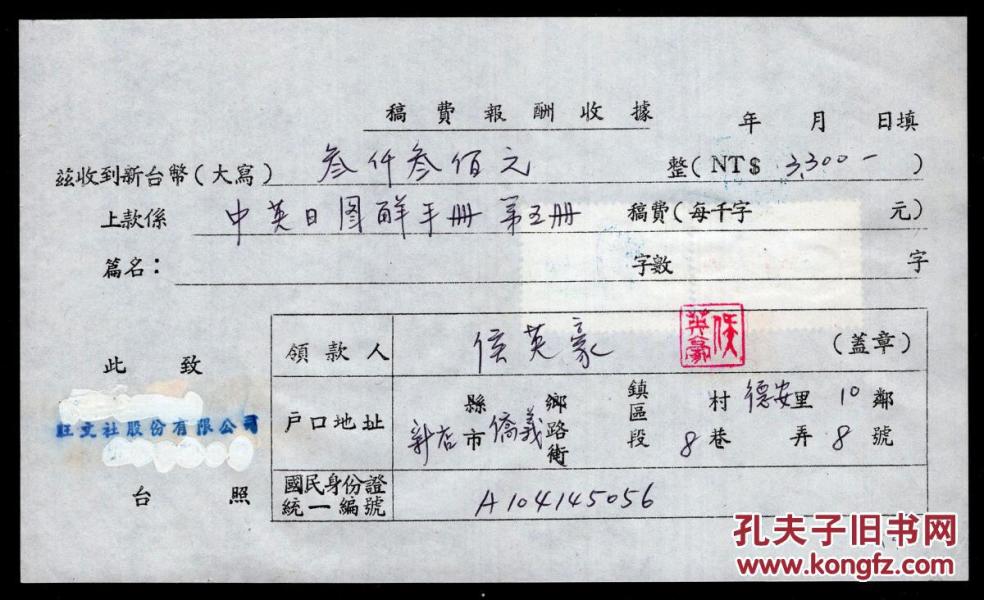 稿費報酬收據
年 月 日填
茲收到新台幣(大寫) 叁仟叁佰元 整(NT$ 3,300- )
上款係 中英日图解手册 第五册 稿費(每千字 元)
篇名: 字數 字
此致
旺文社股份有限公司
台照
領款人 侯英豪 侯英豪 (盖章)
戶口地址 新店 縣市 僑義 鄉路街 鎮區段 村 德安里 10 鄰
8 巷 弄 8 號
國民身份證統一編號 A104145056
孔夫子旧书网
www.kongfz.com